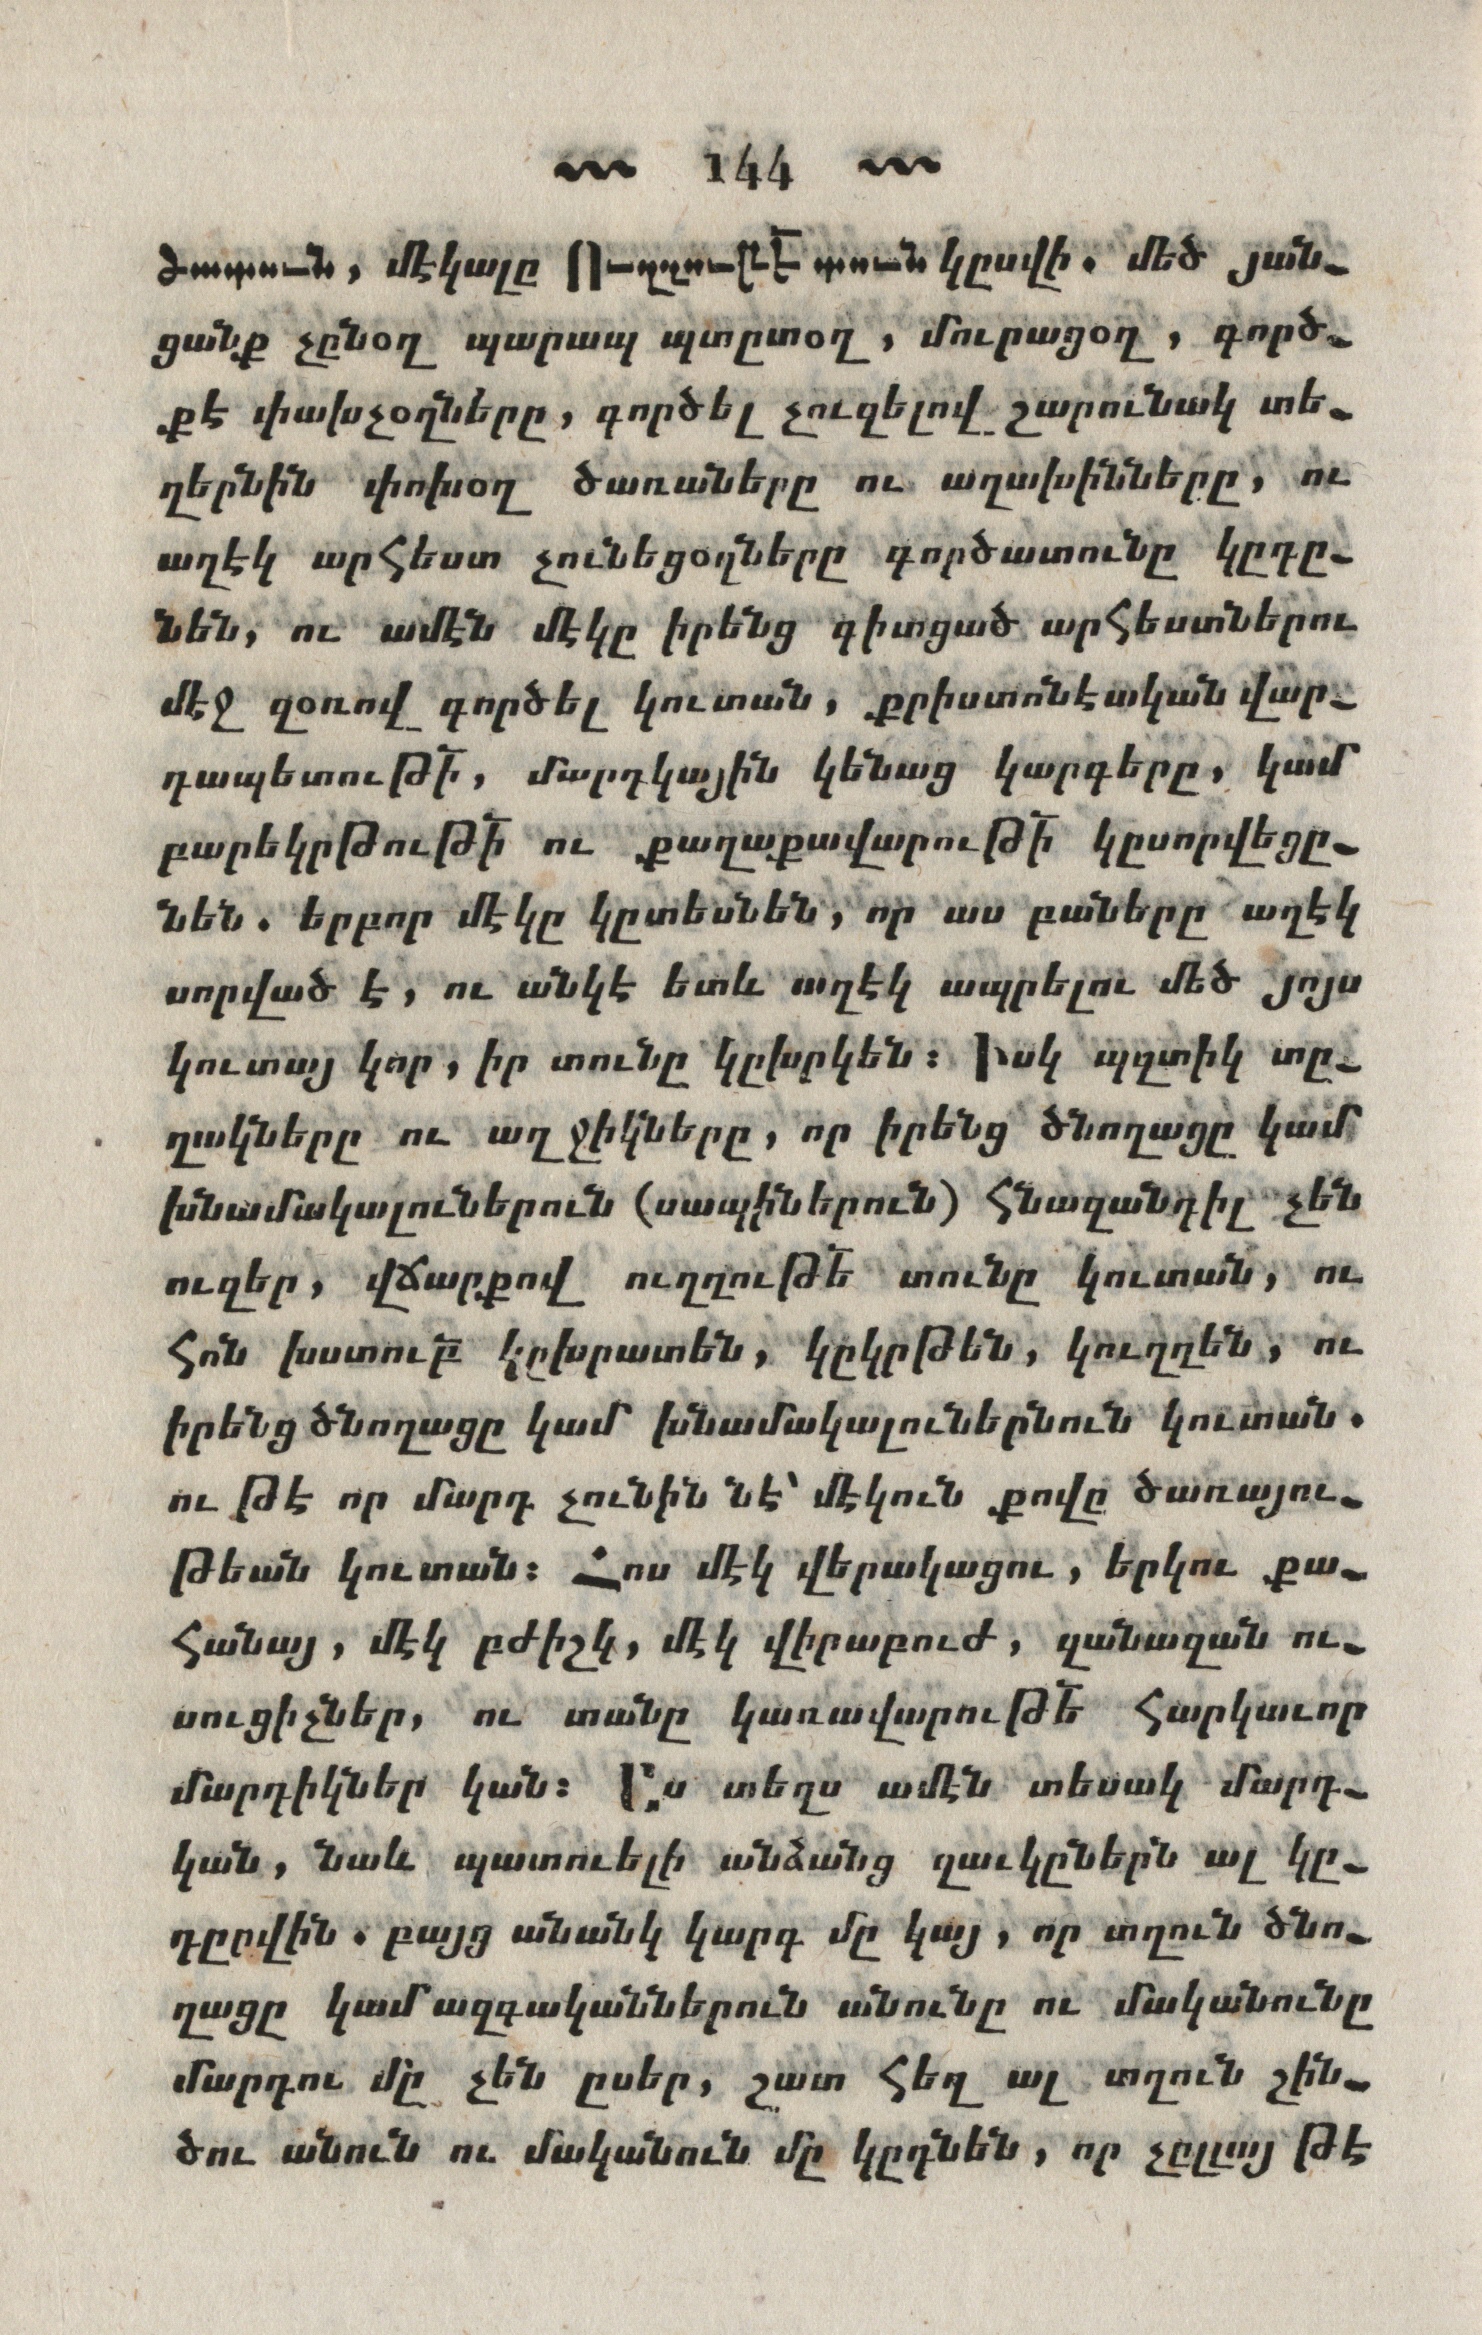 144
ծատուն, մէկալը Ուղղութէ տուն կըսվի. մեծ յան֊
ցանք չընօղ պարապ պտըտօղ, մուրացօղ, գործ֊
քէ փախչօղները, գործել չուզելով շարունակ տե֊
ղերնին փոխօղ ծառաները ու աղախինները, ու
աղէկ արհեստ չունեցօղները գործատունը կըդը֊
նեն, ու ամէն մէկը իրենց գիտցած արհեստներու
մէջ զօռով գործել կուտան, քրիստոնէական վար֊
դապետութի, մարդկային կենաց կարգերը, կամ
բարեկրթութի ու քաղաքավարութի կըսորվեցը֊
նեն. երբոր մէկը կըտեսնեն, որ աս բաները աղէկ
սորված է, ու անկէ ետև աղէկ ապրելու մեծ յոյս
կուտայ կոր, իր տունը կըխրկեն։ Իսկ պզտիկ տը֊
ղակները ու աղջիկները, որ իրենց ծնողացը կամ
խնամակալուներուն (սապիներուն) հնազանդիլ չեն
ուզեր, վճարքով ուղղութե տունը կուտան, ու
հոն խստուբ կըխրատեն, կըկրթեն, կուղղեն, ու
իրենց ծնողացը կամ խնամակալուներնուն կուտան.
ու թէ որ մարդ չունին նէ՝ մէկուն քովը ծառայու֊
թեան կուտան։ Հոս մէկ վերակացու, երկու քա֊
հանայ, մէկ բժիշկ, մէկ վիրաբուժ, զանազան ու֊
սուցիչներ, ու տանը կառավարութե հարկաւոր
մարդիկներ կան։ Ըս տեղս ամէն տեսակ մարդ֊
կան, նաև պատուելի անձանց զաւկըներն ալ կը֊
դըրվին. բայց անանկ կարգ մը կայ, որ տղուն ծնո֊
ղացը կամ ազգականներուն անունը ու մականունը
մարդու մը չեն ըսեր, շատ հեղ ալ տղուն շին֊
ծու անուն ու մականուն մը կըդնեն, որ չըլլայ թէ